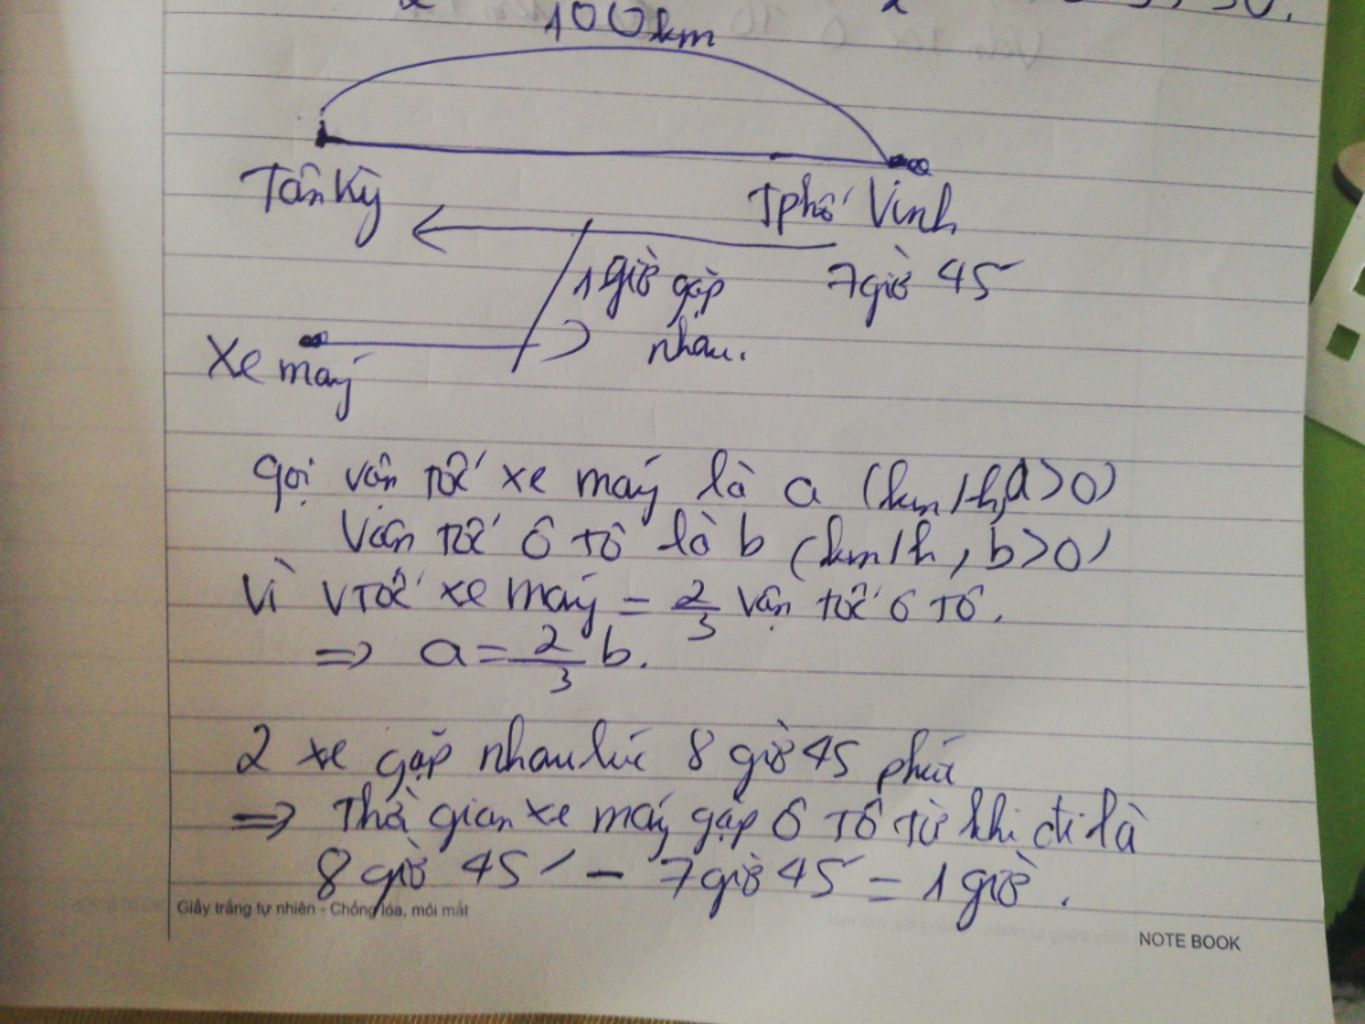 100km
Tân Kỳ
Tphố Vinh
1 giờ gặp
nhau.
7giờ 45
Xe máy
gọi vận tốc xe máy là a (km/h, a>0)
Vận tốc ô tô là b (km/h, b>0)
Vì vtốc xe máy = 2/3 vận tốc ô tô.
=> a = 2/3 b.
2 xe gặp nhau lúc 8 giờ 45 phút
=> Thời gian xe máy gặp ô tô từ khi đi là
8 giờ 45' - 7 giờ 45' = 1 giờ.
Giấy trắng tự nhiên - Chống lóa, mỏi mắt
NOTE BOOK